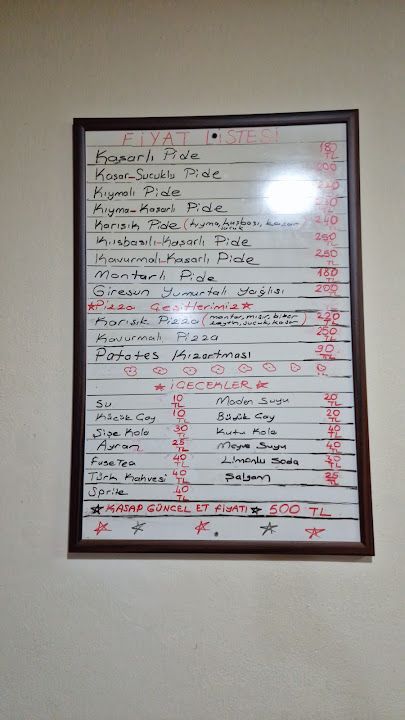 FİYAT LİSTESİ
Kaşarlı Pide 180 TL
Kaşar-Sucuklu Pide 200
Kıymalı Pide
Kıyma-Kaşarlı Pide
Karışık Pide (kıyma, kuşbaşı, kaşar 240
Kuşbaşılı-Kaşarlı Pide 250 TL
Kavurmalı-Kaşarlı Pide 250 TL
Mantarlı Pide 180 TL
Giresun Yumurtalı Yağlısı 200 TL
Pizza Çeşitlerimiz
Karışık Pizza (mantar, mısır, biber zeytin, sucuk, kaşar) 220 TL
Kavurmalı Pizza 250 TL
Patates Kızartması 90 TL
İÇECEKLER
Su 10 TL Maden Suyu 20 TL
Küçük Çay 10 TL Büyük Çay 20 TL
Şişe Kola 30 TL Kutu Kola 40 TL
Ayran 25 TL Meyve Suyu 40 TL
Fuse Tea 40 TL Limonlu Soda 30 TL
Türk Kahvesi 40 TL Şalgam 25 TL
Sprite 40 TL
KASAP GÜNCEL ET FİYATI 500 TL